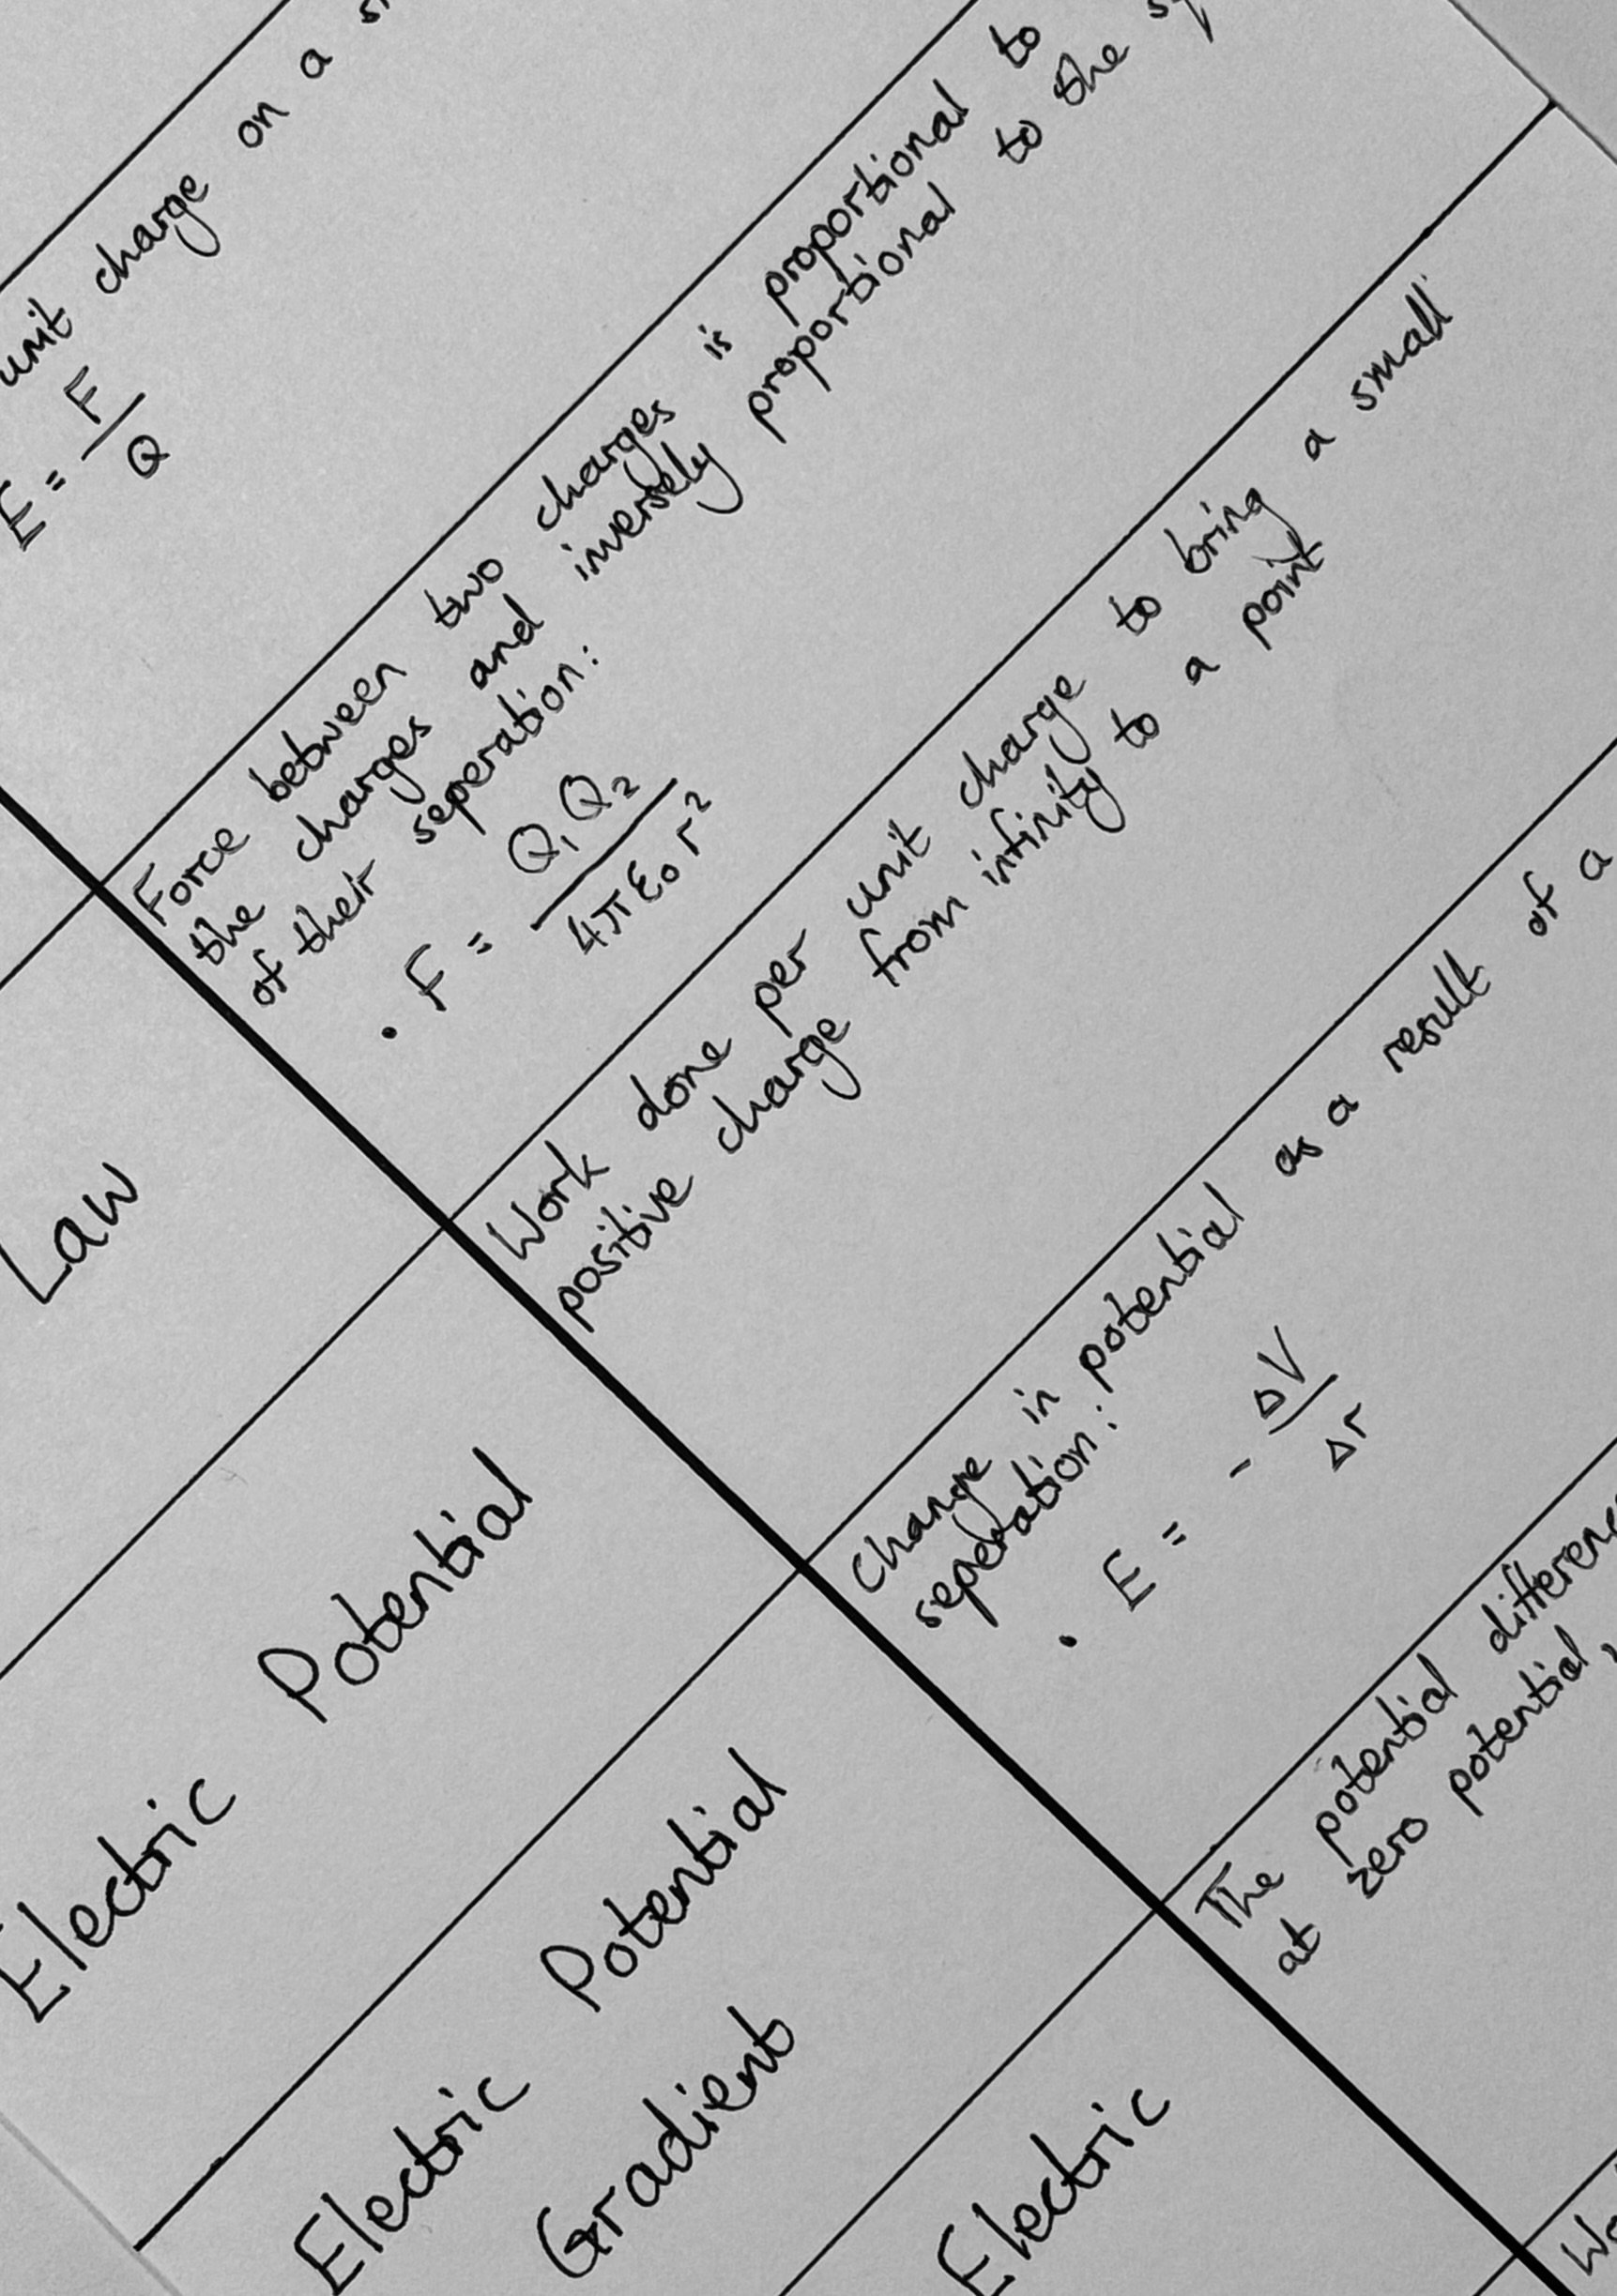 unit charge on a
E = F/Q
Law
Force between two charges is proportional to
the charges and inversely proportional to the
of their seperation:
• F = Q₁Q₂/4πε₀r²
Electric Potential
Work done per unit charge to bring a small
positive charge from infinity to a point
Electric Potential
Gradient
Change in potential as a result of a
seperation:
• E = - ΔV/Δr
Electric
The potential
at zero potential,